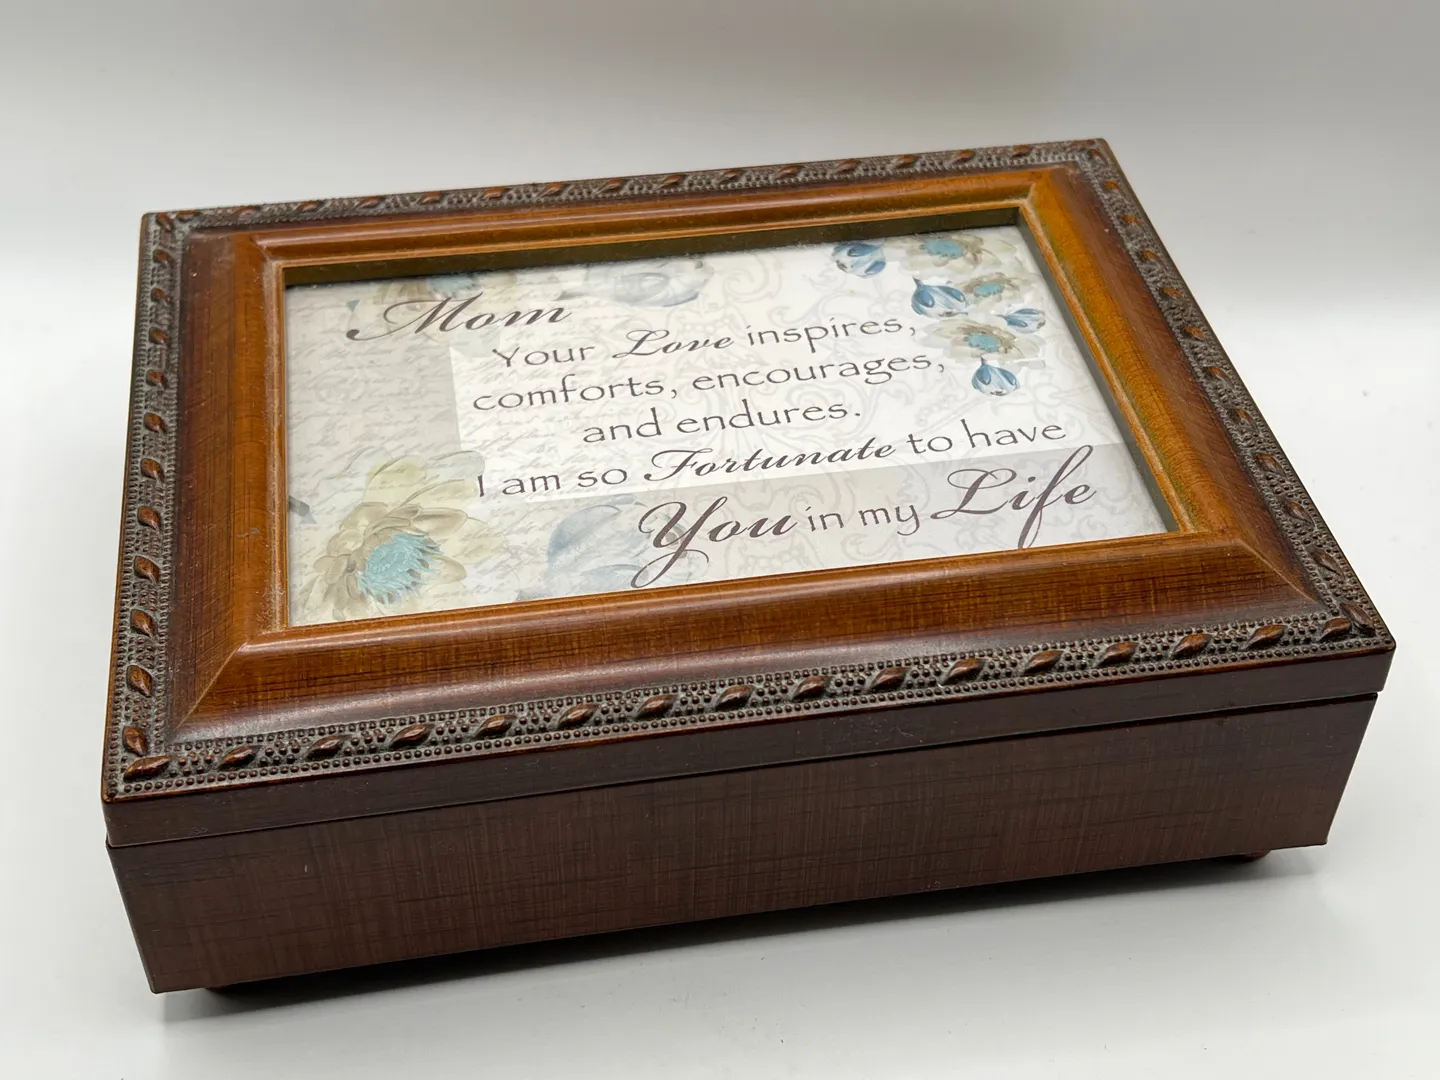 Mom
Your Love inspires,
comforts, encourages,
and endures.
I am so Fortunate to have
You in my Life